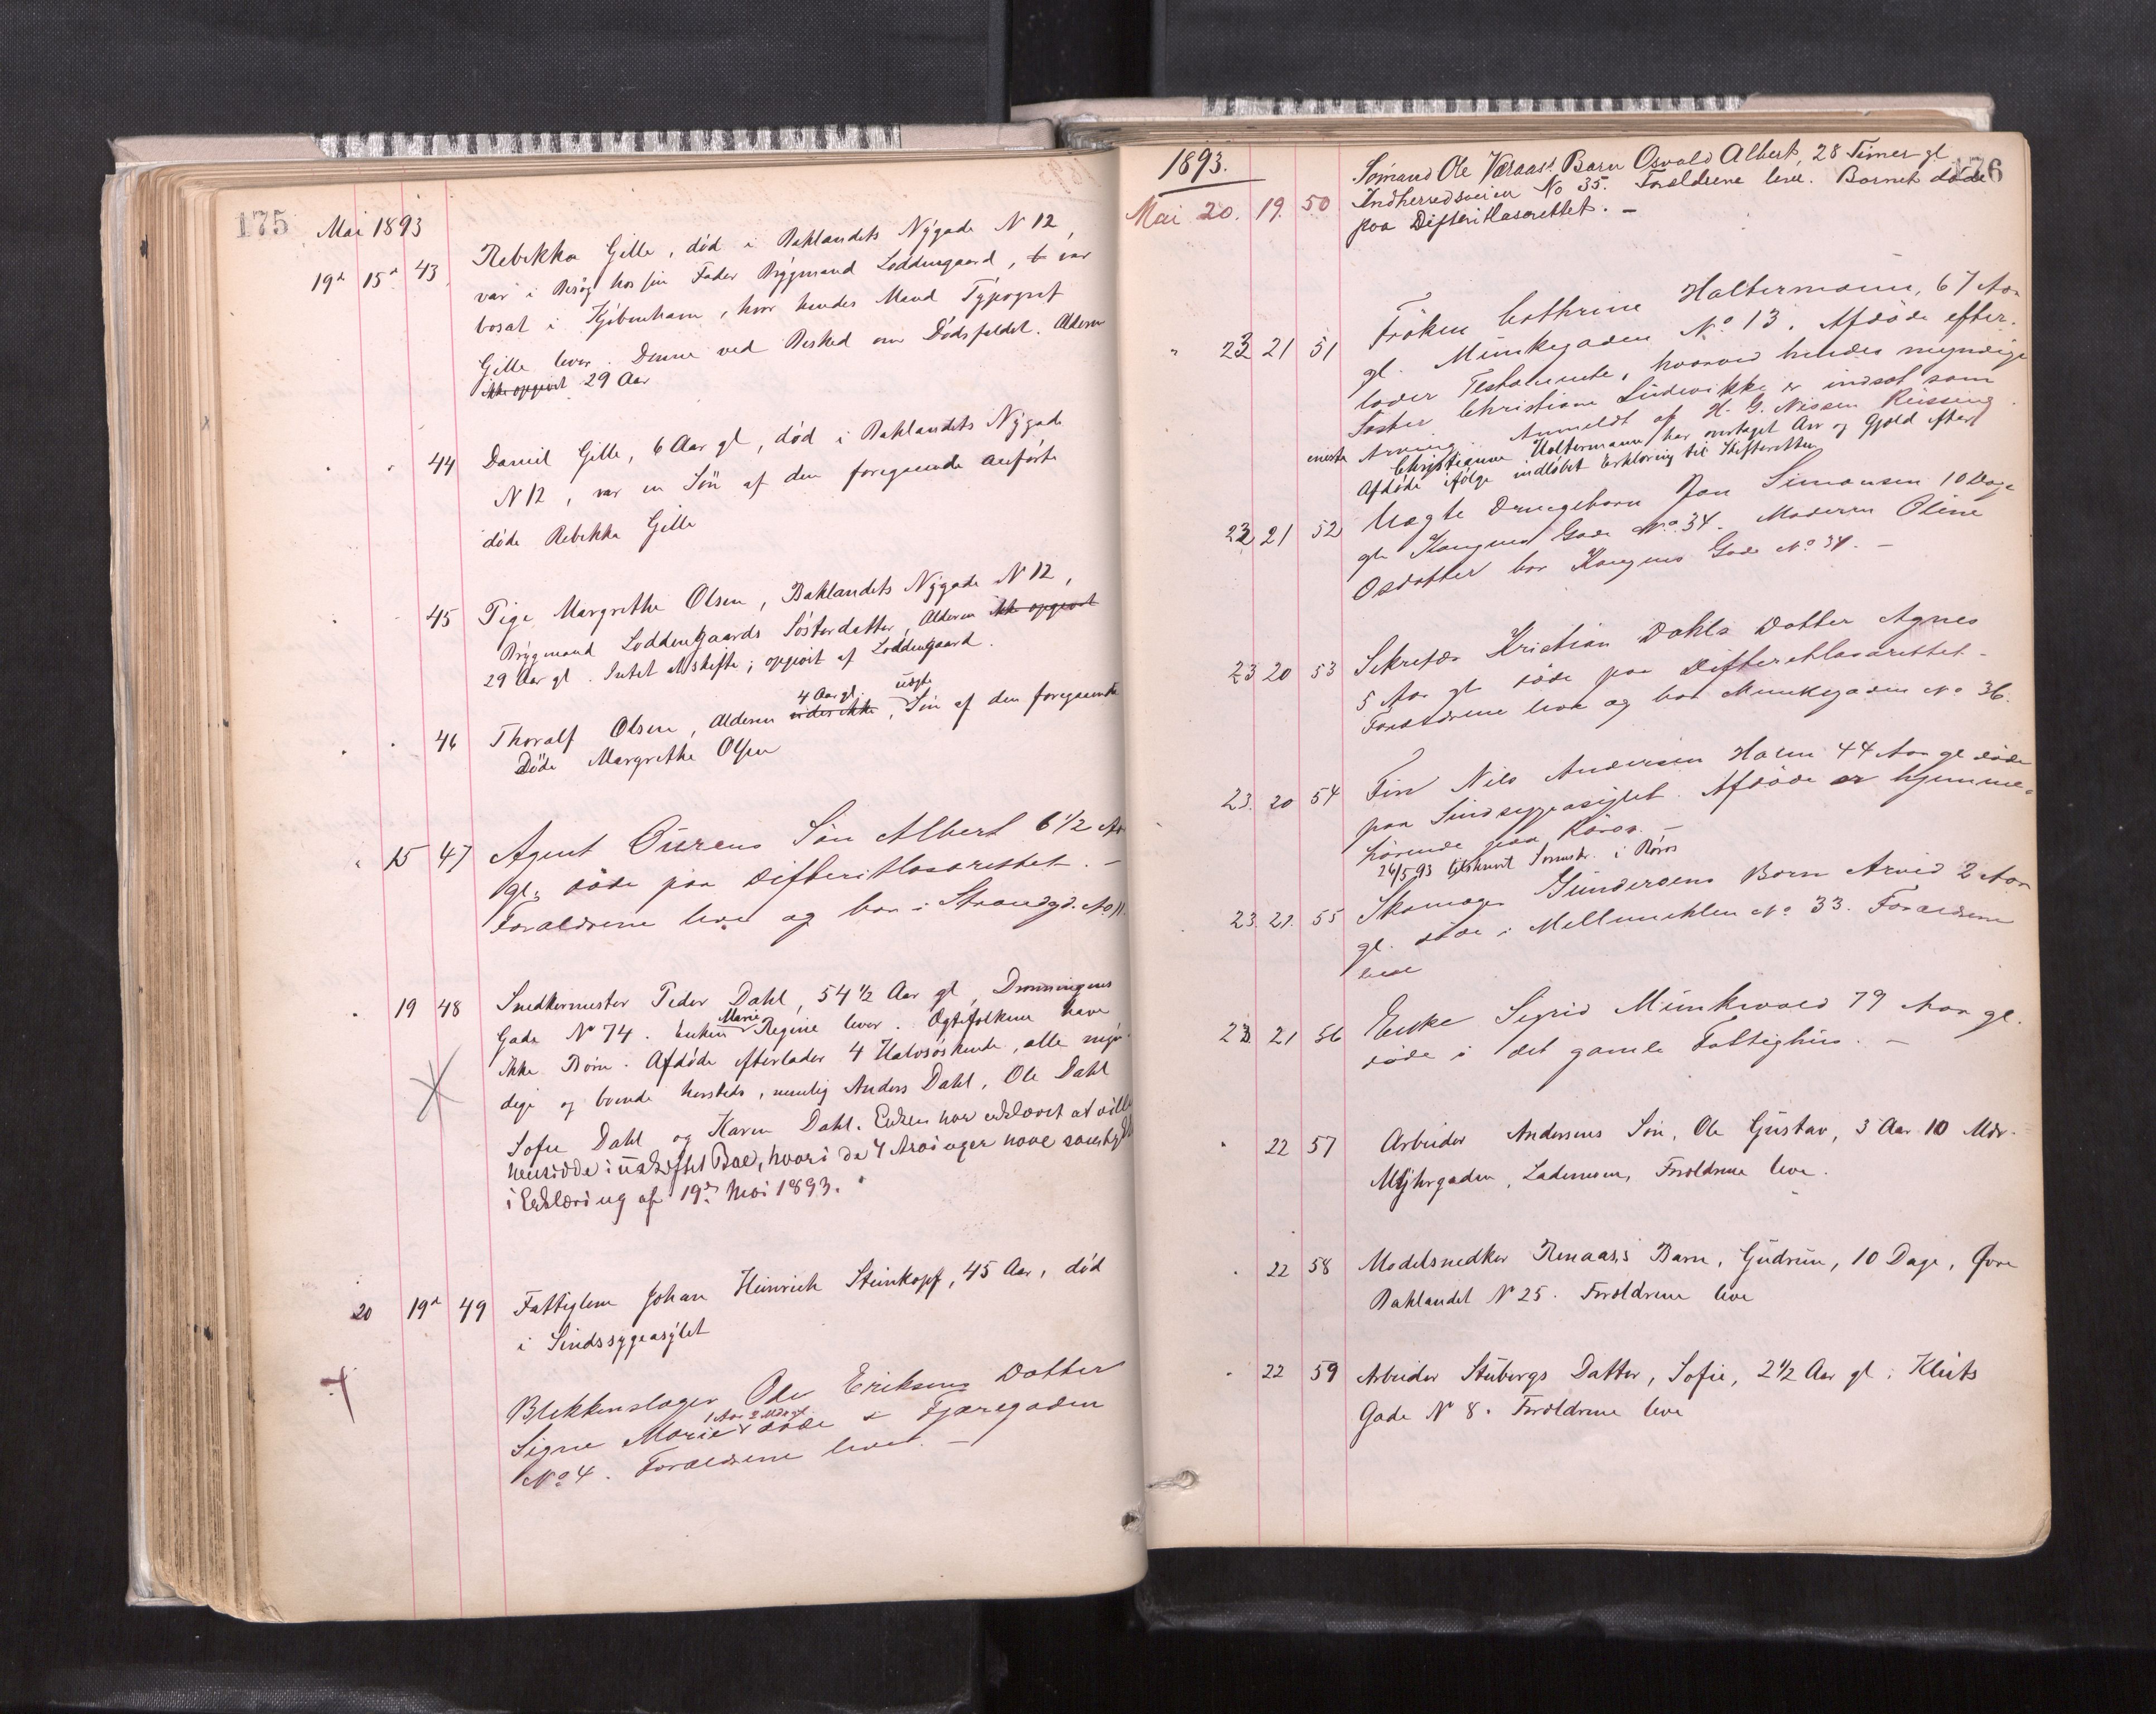 175 Mai 1893
19d 15d 43 Rebekka Gille, död i Baklandets Nÿgade N 12,
var i Besög hos sin Fader Brÿgmand Loddengaard, & var
bosat i Kjöbenhavn, hvor hendes Mand Typograf
Gille lever. Denne ved Besked om Dödsfaldet. Alderen
ikke opgivet 29 Aar
" " 44 Daniel Gille, 6 Aar gl, död i Baklandets Nÿgade
N 12, var en Sön af den foregaaende anförte
döde Rebekka Gille
" " 45 Pige Margrethe Olsen, Baklandets Nÿgade N 12,
Brÿgmand Loddengaards Sösterdatter, Alderen ikke opgivet
29 Aar gl. Intet at skifte; opgivet af Loddengaard.
4 Aar gl. uægte
" " 46 Thoralf Olsen, Alderen vides ikke, Sön af den foregaaende
Döde Margrethe Olsen
" 15 47 Agent Ourens Sön Albert 6 1/2 Aar
gl. döde paa Difteritlasarettet. –
Forældrene leve og bor i Strandgd. No 11.
" 19 48 Snedkermester Peder Dahl, 54 1/2 Aar gl, Dronningens
Gade No 74. Enken Marie Regine lever. Ægtefolkene have
ikke Börn. Afdöde efterlader 4 Halvsöskende, alle myn-
dige og boende hersteds, nemlig Anders Dahl, Ole Dahl
Sofie Dahl og Karen Dahl. Enken har erklæret at ville
hensidde i uskiftet Boe, hvori de 4 Arvinger have samtykket
i Erklæring af 19de Mai 1893.
20 19d 49 Fattiglem Johan Heinrich Steinkopf, 45 Aar, död
i Sindssygeasÿlet
Blikkenslager Ole Eriksens Datter
1 Aar 2 Mdr gl.
Signe Marie döde i Fjæregaden
No 4. Forældrene lever. –
176
1893.
Mai 20. 19. 50 Sömand Ole Væraas's Barn Osvald Albert, 28 Timer gl
Indherredsveien No 35. Forældrene leve. Barnet döde
paa Difteritlasarettet. –
" 23 21 51 Fröken Cathrine Haltermann, 67 Aar
gl. Munkegaden No 13. Afdöde efter-
lader Testamente, hvorved hendes myndige
Söster Christiane Ludovikke er indsat som
eneste Arving. Anmeldt af H. G. Nissen Reissing.
Christianne Haltermann har overtaget Arv og Gjæld efter
Afdöde ifölge indlöbet Erklæring til Skifteretten
23 21 52 Uægte Drengebarn Jon Simonsen 10 Dage
gl. Kongens Gade No 34. Moderen Oline
Osdatter bor Kongens Gade No 34. –
23 20 53 Sekretær Kristian Dahls Datter Agnes
5 Aar gl. döde paa Difteritlasarettet.
Forældrene leve og bor Munkegaden No 36.
23. 20 54 Fin Nils Andersen Holm 44 Aar gl. döde
paa Sindssygeasÿlet. Afdöde er hjemme-
hörende paa Röros. –
26/5 93 tilskrevet Sorenskr. i Röros
23. 21. 55 Skomager Gundersens Barn Arvid 2 Aar
gl. döde i Mellemiehlen No 33. Forældrene
leve
23. 21 56 Enke Sigrid Munkvold 79 Aar gl.
döde i det gamle Fattighus. –
" 22 57 Arbeider Andersens Sön, Ole Gustav, 3 Aar 10 Mdr.
Mÿhrgaden, Lademoen, Forældrene leve.
" 22 58 Modelsnedker Renaas's Barn, Gudrun, 10 Dage, Övre
Baklandet No 25. Forældrene leve
" 22 59 Arbeider Stubergs Datter, Sofie, 2 1/2 Aar gl. Kluts
Gade No 8. Forældrene leve